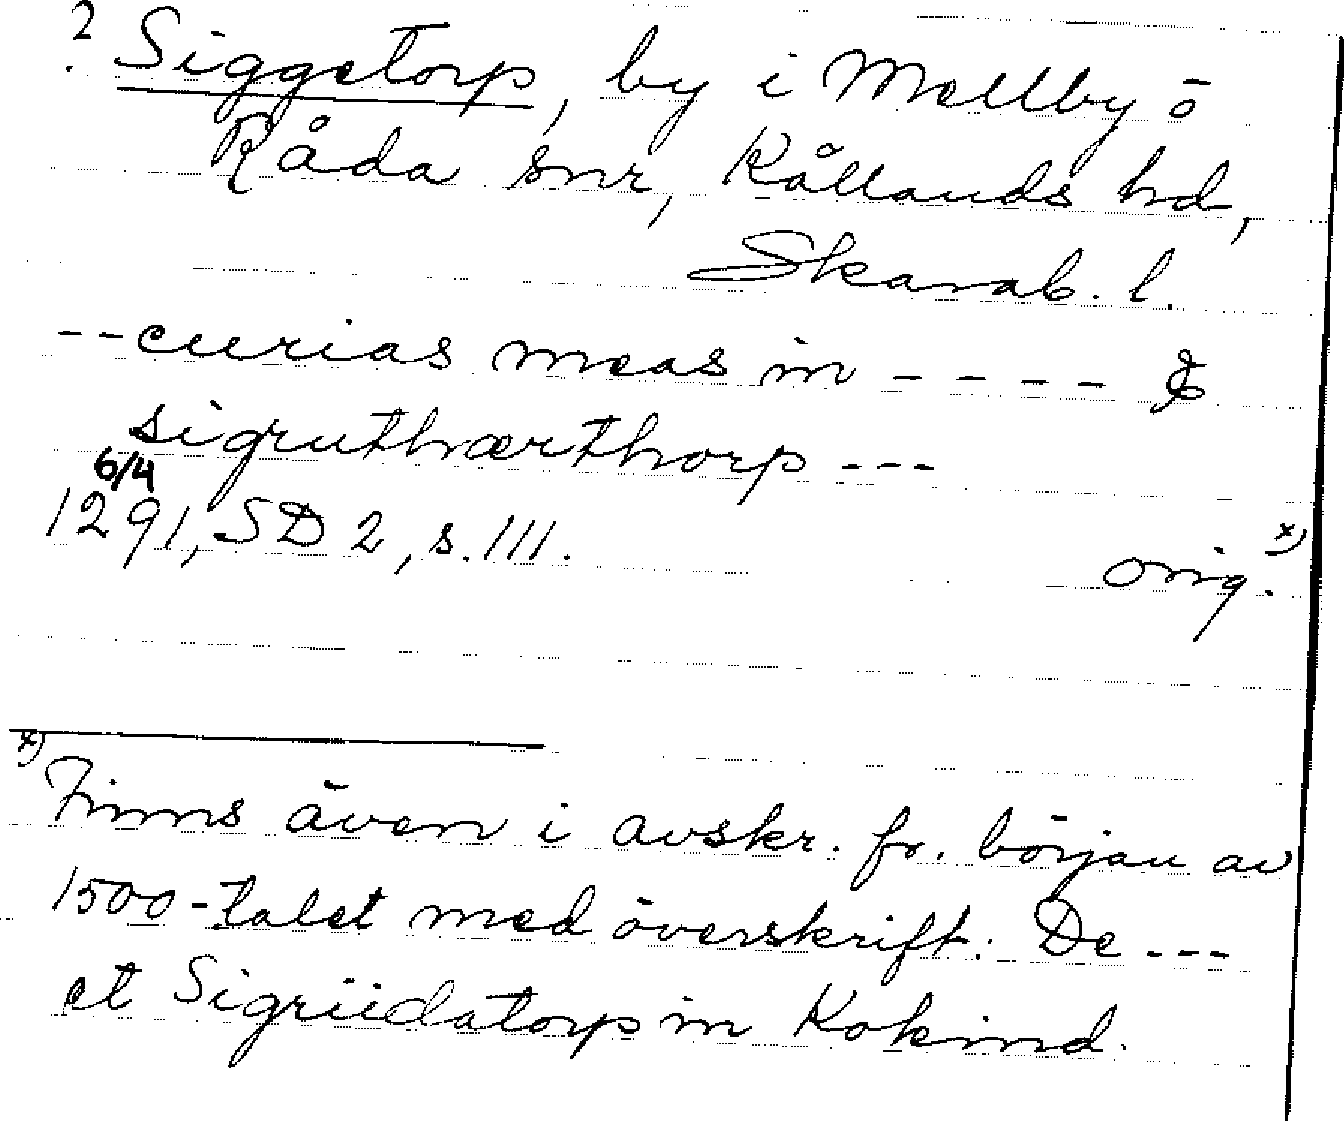 ? Siggetorp, by i Mellby o
Råda snr, Kållands hd,
Skarab. l.
--curias meas in ---- &
sigruthærthorp ---
6/4
1291, SD 2, s. 111. orig. x)
x) Finns även i avskr. fr. början av
1500-talet med överskrift: De ---
et Sigriidatorp in Kakind.